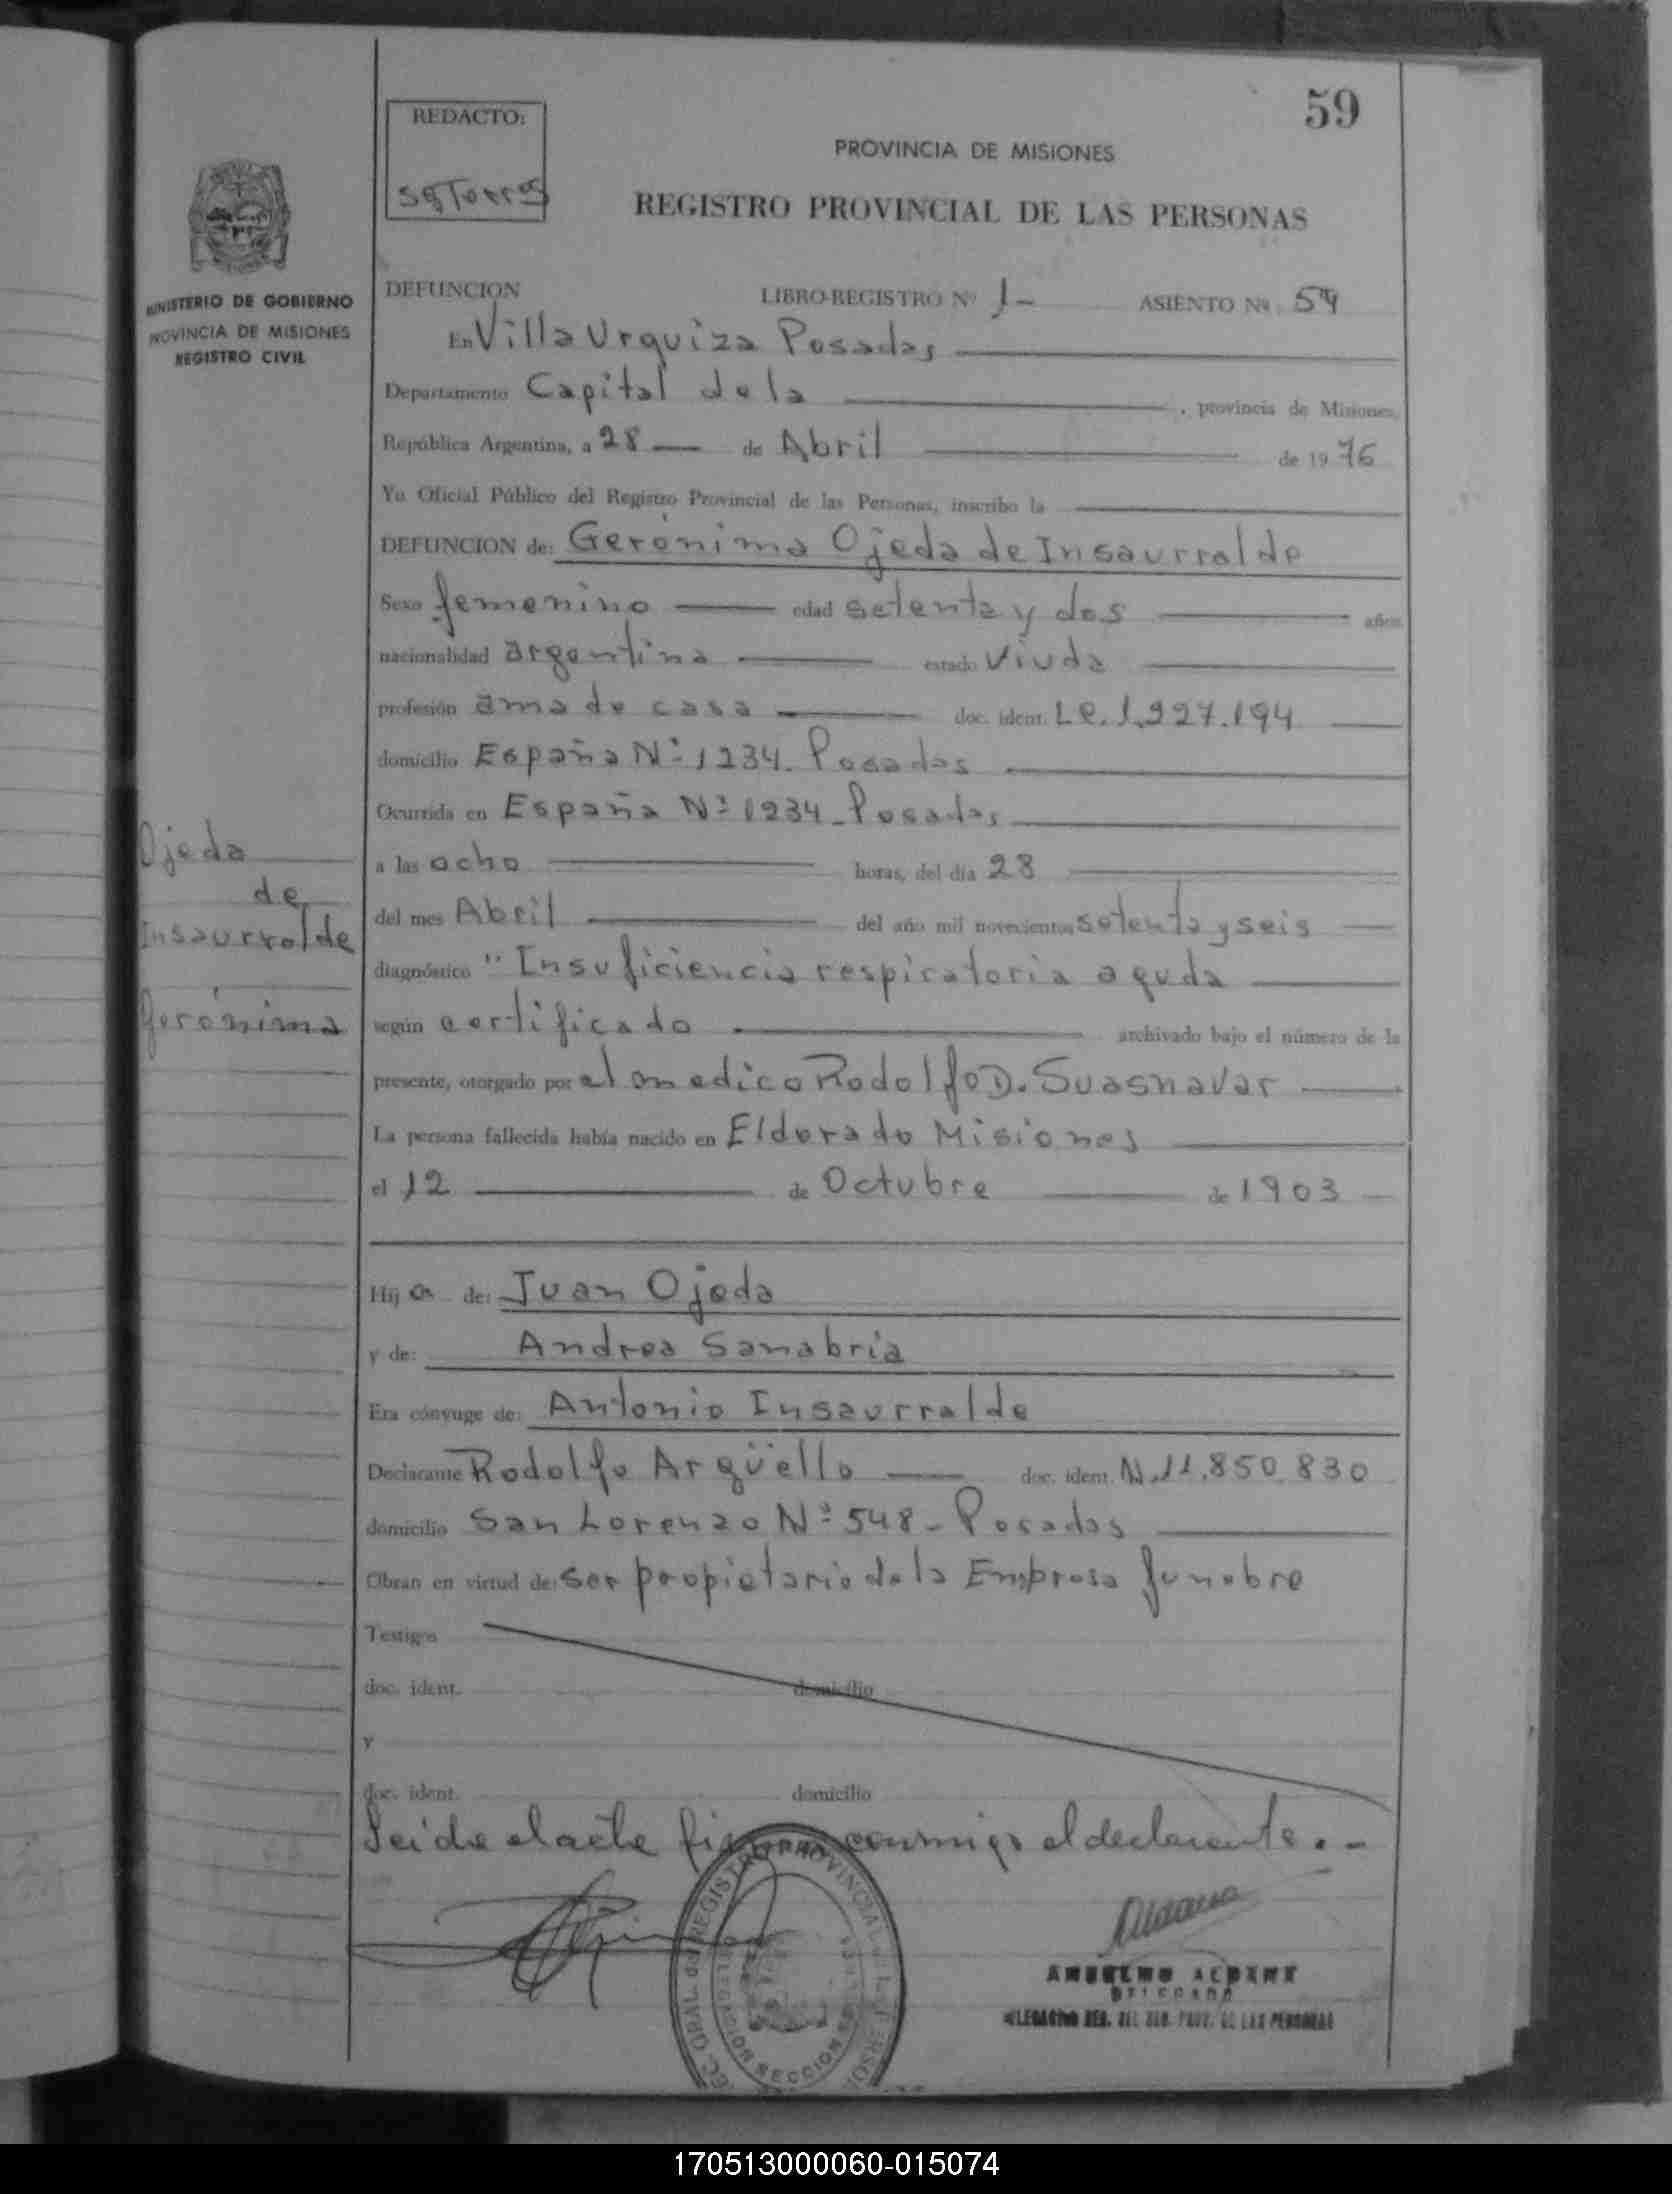 59
REDACTO:
PROVINCIA DE MISIONES
REGISTRO PROVINCIAL DE LAS PERSONAS
MINISTERIO DE GOBIERNO
PROVINCIA DE MISIONES
REGISTRO CIVIL
DEFUNCION LIBRO-REGISTRO Nº 1- ASIENTO Nº 59
En Villa Urquiza Posadas
Departamento Capital de la , provincia de Misiones,
República Argentina, a 28 de Abril de 1976
Yo Oficial Público del Registro Provincial de las Personas, inscribo la
DEFUNCION de: Gerónima Ojeda de Insaurralde
Sexo femenino edad setenta y dos años
nacionalidad argentina estado Viuda
profesión ama de casa doc. ident. Le. 1.227.194
domicilio España Nº 1234. Posadas
Ocurrida en España Nº 1234 - Posadas
a las ocho horas, del día 28
del mes Abril del año mil novecientos setenta y seis
diagnóstico "Insuficiencia respiratoria aguda
según certificado archivado bajo el número de la
presente, otorgado por el medico Rodolfo D. Suasnavar
La persona fallecida había nacido en Eldorado Misiones
el 12 de Octubre de 1903
Ojeda
de
Insaurralde
Gerónima
Hija de: Juan Ojeda
y de: Andrea Sanabria
Era cónyuge de: Antonio Insaurralde
Declarante Rodolfo Argüello doc. ident. N. 11.850.830
domicilio San Lorenzo Nº 548 - Posadas
Obran en virtud de: ser propietario de la Empresa funebre
Testigos
doc. ident. domicilio
y
doc. ident. domicilio
Leida el acta conmigo el declarante. -
REGISTRO PROVINCIAL
SECCION
170513000060-015074